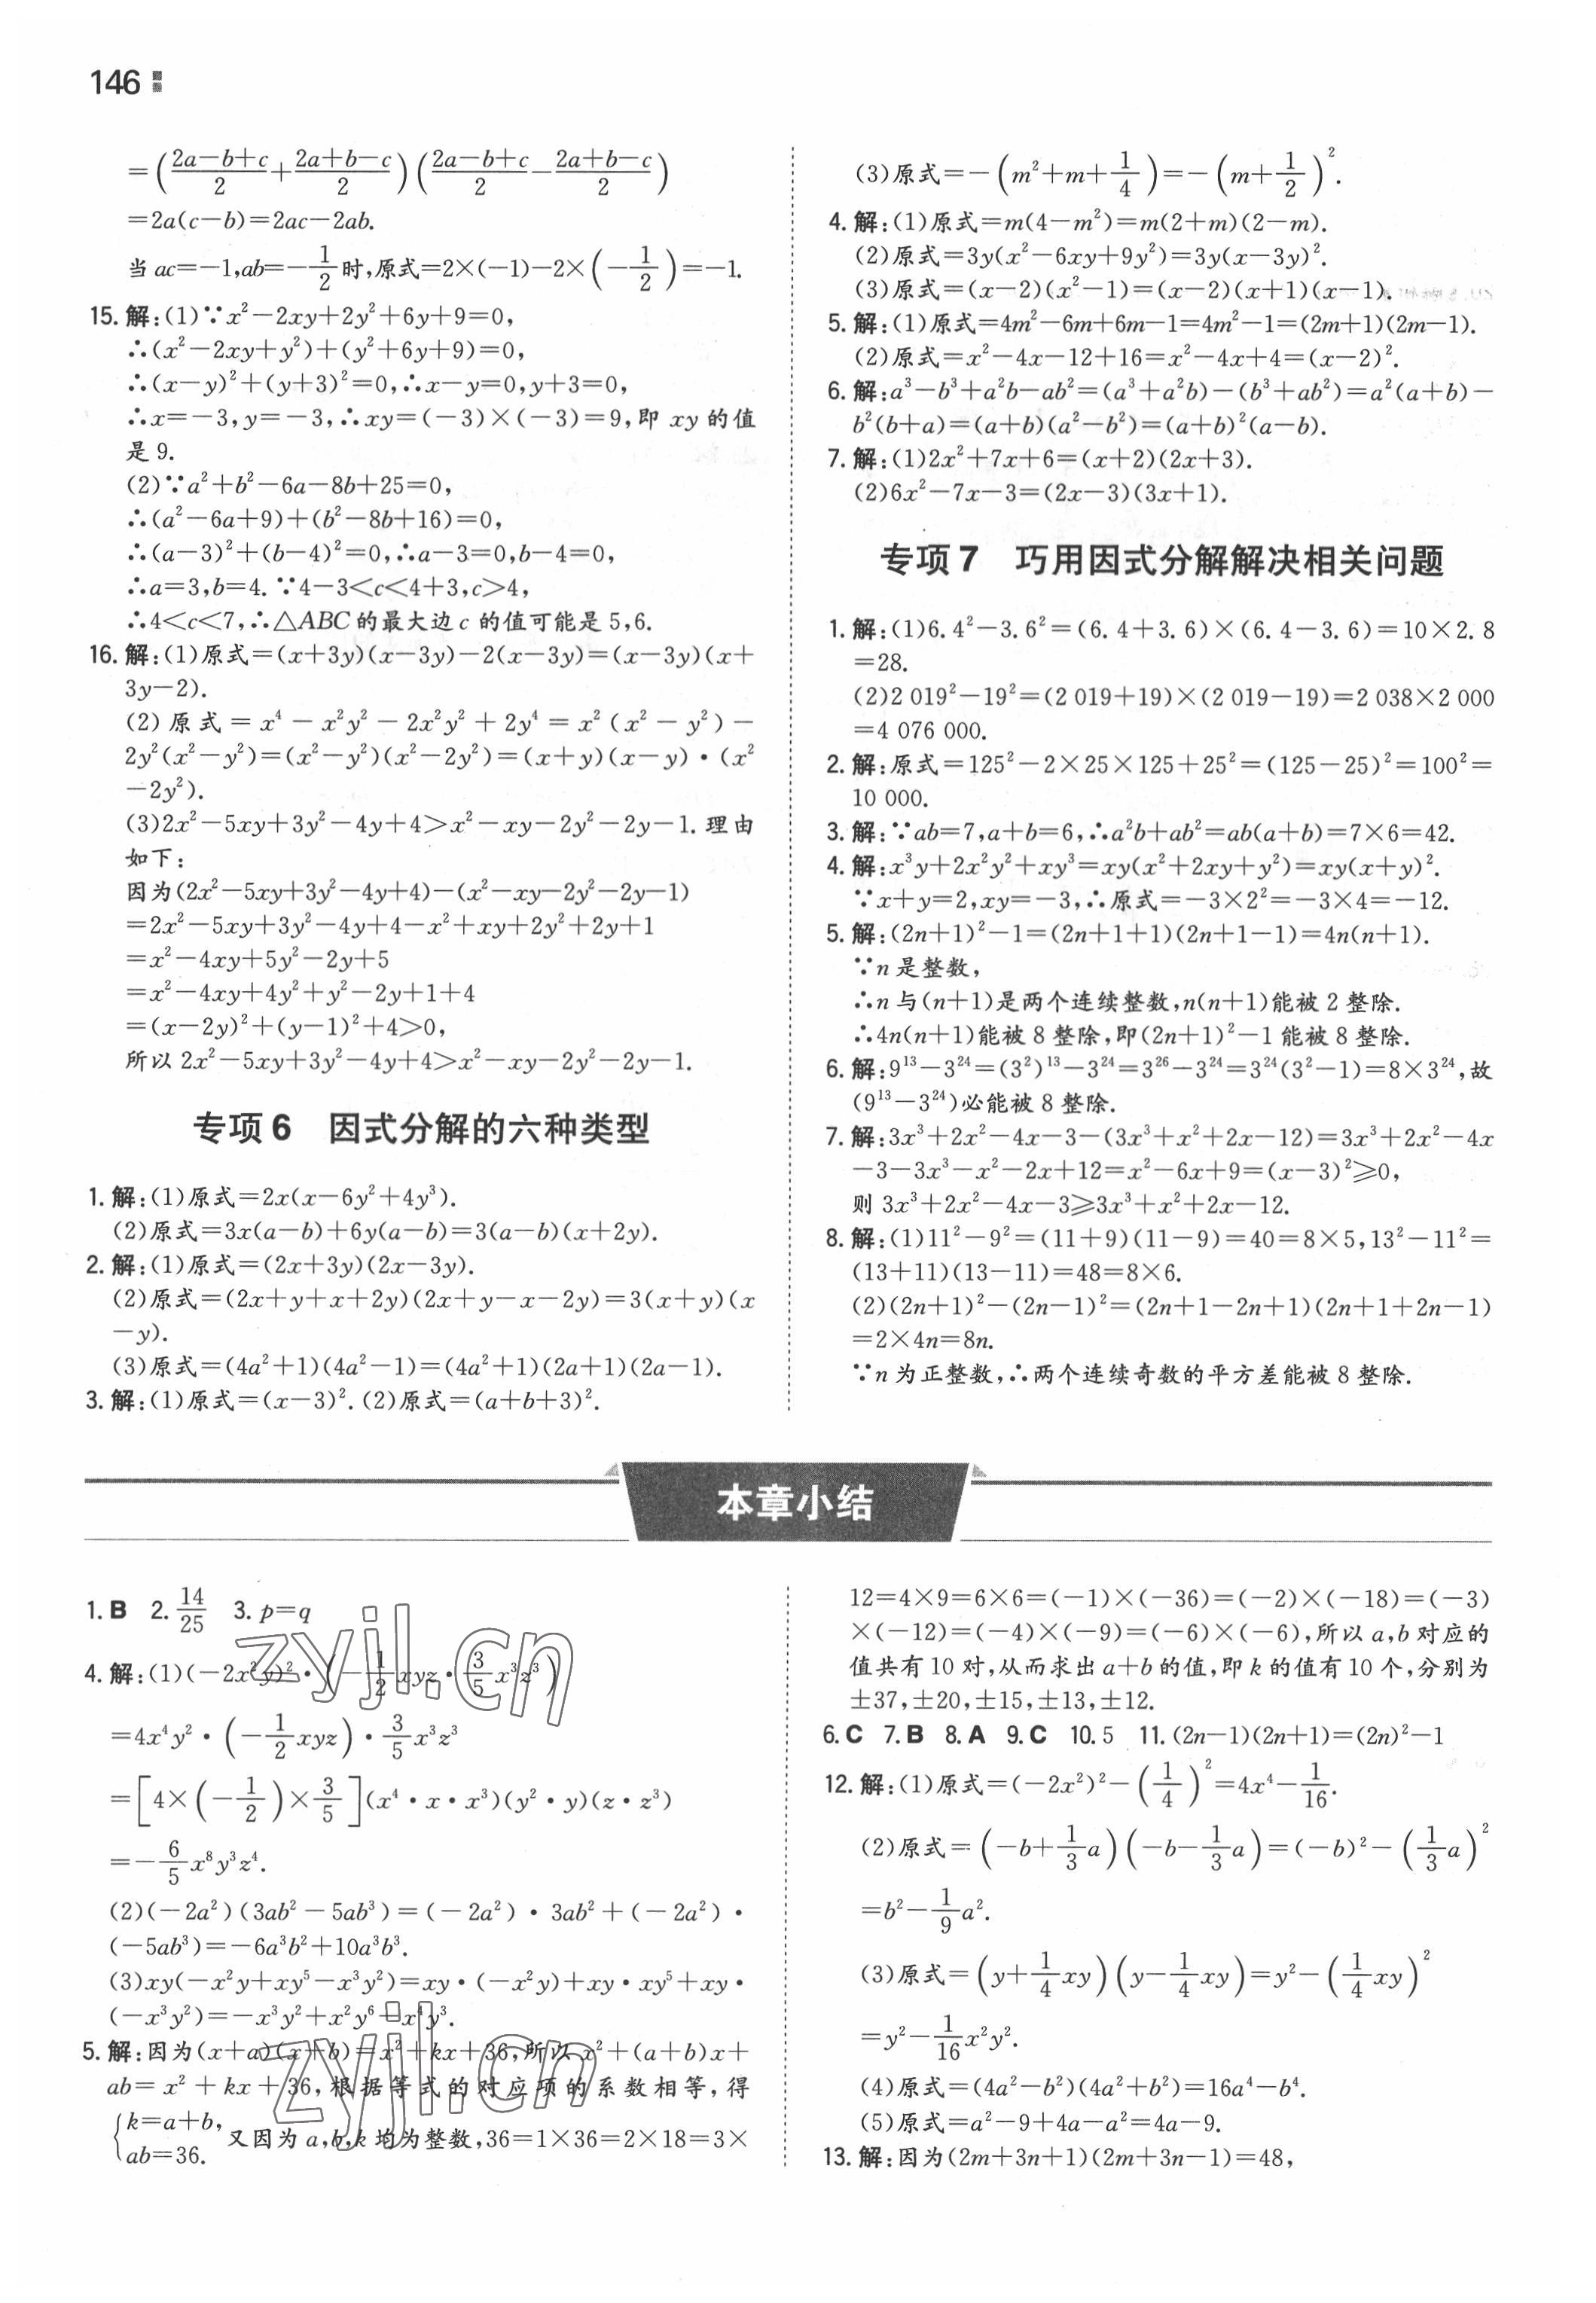 146
=((2a-b+c)/2+(2a+b-c)/2)((2a-b+c)/2-(2a+b-c)/2)
=2a(c-b)=2ac-2ab.
当 ac=-1,ab=-1/2时,原式=2×(-1)-2×(-1/2)=-1.
15. 解:(1)∵x²-2xy+2y²+6y+9=0,
∴(x²-2xy+y²)+(y²+6y+9)=0,
∴(x-y)²+(y+3)²=0,∴x-y=0,y+3=0,
∴x=-3,y=-3,∴xy=(-3)×(-3)=9,即 xy 的值
是 9.
(2)∵a²+b²-6a-8b+25=0,
∴(a²-6a+9)+(b²-8b+16)=0,
∴(a-3)²+(b-4)²=0,∴a-3=0,b-4=0,
∴a=3,b=4. ∵4-3<c<4+3,c>4,
∴4<c<7,∴△ABC 的最大边 c 的值可能是 5,6.
16. 解:(1)原式=(x+3y)(x-3y)-2(x-3y)=(x-3y)(x+
3y-2).
(2)原式=x⁴-x²y²-2x²y²+2y⁴=x²(x²-y²)-
2y²(x²-y²)=(x²-y²)(x²-2y²)=(x+y)(x-y)·(x²
-2y²).
(3)2x²-5xy+3y²-4y+4>x²-xy-2y²-2y-1. 理由
如下:
因为(2x²-5xy+3y²-4y+4)-(x²-xy-2y²-2y-1)
=2x²-5xy+3y²-4y+4-x²+xy+2y²+2y+1
=x²-4xy+5y²-2y+5
=x²-4xy+4y²+y²-2y+1+4
=(x-2y)²+(y-1)²+4>0,
所以 2x²-5xy+3y²-4y+4>x²-xy-2y²-2y-1.
专项 6 因式分解的六种类型
1. 解:(1)原式=2x(x-6y²+4y³).
(2)原式=3x(a-b)+6y(a-b)=3(a-b)(x+2y).
2. 解:(1)原式=(2x+3y)(2x-3y).
(2)原式=(2x+y+x+2y)(2x+y-x-2y)=3(x+y)(x
-y).
(3)原式=(4a²+1)(4a²-1)=(4a²+1)(2a+1)(2a-1).
3. 解:(1)原式=(x-3)². (2)原式=(a+b+3)².
(3)原式=-(m²+m+1/4)=-(m+1/2)².
4. 解:(1)原式=m(4-m²)=m(2+m)(2-m).
(2)原式=3y(x²-6xy+9y²)=3y(x-3y)².
(3)原式=(x-2)(x²-1)=(x-2)(x+1)(x-1).
5. 解:(1)原式=4m²-6m+6m-1=4m²-1=(2m+1)(2m-1).
(2)原式=x²-4x-12+16=x²-4x+4=(x-2)².
6. 解:a³-b³+a²b-ab²=(a³+a²b)-(b³+ab²)=a²(a+b)-
b²(b+a)=(a+b)(a²-b²)=(a+b)²(a-b).
7. 解:(1)2x²+7x+6=(x+2)(2x+3).
(2)6x²-7x-3=(2x-3)(3x+1).
专项 7 巧用因式分解解决相关问题
1. 解:(1)6.4²-3.6²=(6.4+3.6)×(6.4-3.6)=10×2.8
=28.
(2)2 019²-19²=(2 019+19)×(2 019-19)=2 038×2 000
=4 076 000.
2. 解:原式=125²-2×25×125+25²=(125-25)²=100²=
10 000.
3. 解:∵ab=7,a+b=6,∴a²b+ab²=ab(a+b)=7×6=42.
4. 解:x³y+2x²y²+xy³=xy(x²+2xy+y²)=xy(x+y)².
∵x+y=2,xy=-3,∴原式=-3×2²=-3×4=-12.
5. 解:(2n+1)²-1=(2n+1+1)(2n+1-1)=4n(n+1).
∵n 是整数,
∴n 与(n+1)是两个连续整数,n(n+1)能被 2 整除.
∴4n(n+1)能被 8 整除,即(2n+1)²-1 能被 8 整除.
6. 解:9¹³-3²⁴=(3²)¹³-3²⁴=3²⁶-3²⁴=3²⁴(3²-1)=8×3²⁴,故
(9¹³-3²⁴)必能被 8 整除.
7. 解:3x³+2x²-4x-3-(3x³+x²+2x-12)=3x³+2x²-4x
-3-3x³-x²-2x+12=x²-6x+9=(x-3)²≥0,
则 3x³+2x²-4x-3≥3x³+x²+2x-12.
8. 解:(1)11²-9²=(11+9)(11-9)=40=8×5,13²-11²=
(13+11)(13-11)=48=8×6.
(2)(2n+1)²-(2n-1)²=(2n+1-2n+1)(2n+1+2n-1)
=2×4n=8n.
∵n 为正整数,∴两个连续奇数的平方差能被 8 整除.
本章小结
1. B 2. 14/25 3. p=q
4. 解:(1)(-2x²y)²·(-1/2xyz·3/5x³z³)
=4x⁴y²·(-1/2xyz)·3/5x³z³
=[4×(-1/2)×3/5](x⁴·x·x³)(y²·y)(z·z³)
=-6/5x⁸y³z⁴.
(2)(-2a²)(3ab²-5ab³)=(-2a²)·3ab²+(-2a²)·
(-5ab³)=-6a³b²+10a³b³.
(3)xy(-x²y+xy⁵-x³y²)=xy·(-x²y)+xy·xy⁵+xy·
(-x³y²)=-x³y²+x²y⁶-x⁴y³.
5. 解:因为(x+a)(x+b)=x²+kx+36,所以 x²+(a+b)x+
ab=x²+kx+36,根据等式的对应项的系数相等,得
{k=a+b, ab=36. 又因为 a,b,k 均为整数,36=1×36=2×18=3×
12=4×9=6×6=(-1)×(-36)=(-2)×(-18)=(-3)
×(-12)=(-4)×(-9)=(-6)×(-6),所以 a,b 对应的
值共有 10 对,从而求出 a+b 的值,即 k 的值有 10 个,分别为
±37,±20,±15,±13,±12.
6. C 7. B 8. A 9. C 10. 5 11. (2n-1)(2n+1)=(2n)²-1
12. 解:(1)原式=(-2x²)²-(1/4)²=4x⁴-1/16.
(2)原式=(-b+1/3a)(-b-1/3a)=(-b)²-(1/3a)²
=b²-1/9a².
(3)原式=(y+1/4xy)(y-1/4xy)=y²-(1/4xy)²
=y²-1/16x²y².
(4)原式=(4a²-b²)(4a²+b²)=16a⁴-b⁴.
(5)原式=a²-9+4a-a²=4a-9.
13. 解:因为(2m+3n+1)(2m+3n-1)=48,
zyjl.cn
zyjl.cn